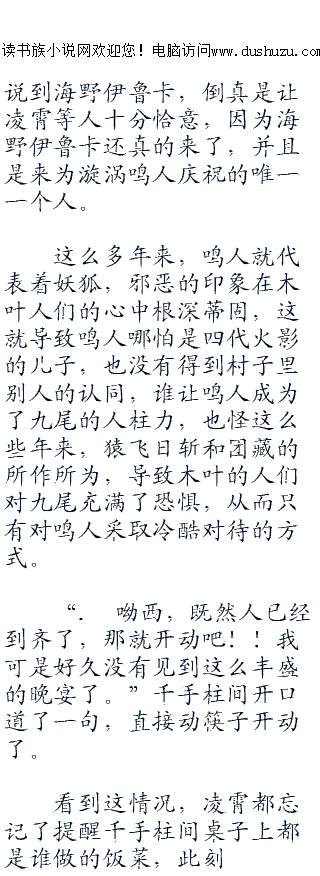 读书族小说网欢迎您！电脑访问www.dushuzu.com
说到海野伊鲁卡，倒真是让
凌霄等人十分恰意，因为海
野伊鲁卡还真的来了，并且
是来为漩涡鸣人庆祝的唯一
一个人。
这么多年来，鸣人就代
表着妖狐，邪恶的印象在木
叶人们的心中根深蒂固，这
就导致鸣人哪怕是四代火影
的儿子，也没有得到村子里
别人的认同，谁让鸣人成为
了九尾的人柱力，也怪这么
些年来，猿飞日斩和团藏的
所作所为，导致木叶的人们
对九尾充满了恐惧，从而只
有对鸣人采取冷酷对待的方
式。
“．　呦西，既然人已经
到齐了，那就开动吧！！我
可是好久没有见到这么丰盛
的晚宴了。”千手柱间开口
道了一句，直接动筷子开动
了。
看到这情况，凌霄都忘
记了提醒千手柱间桌子上都
是谁做的饭菜，此刻